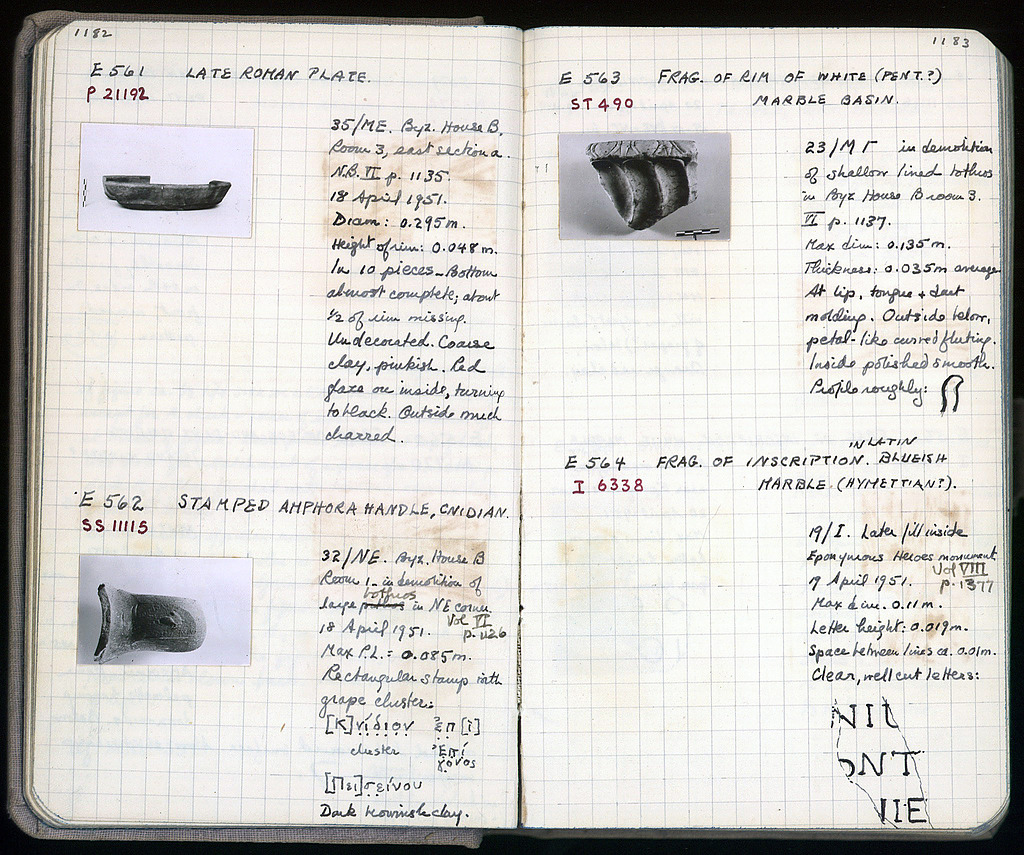 1182
E 561 LATE ROMAN PLATE.
P 21192
35/ME. Byz. House B,
Room 3, east section a.
N.B. VI p. 1135.
18 April 1951.
Diam: 0.295m.
Height of rim: 0.048m.
In 10 pieces - Bottom
almost complete; about
½ of rim missing.
Undecorated. Coarse
clay, pinkish. Red
glaze on inside, turning
to black. Outside much
charred.
E 562 STAMPED AMPHORA HANDLE, CNIDIAN.
SS 11115
32/NE. Byz. House B
Room 1 - in demolition of
bothros
large pithos in NE corner.
18 April 1951. Vol VI p. 1126
Max P.L. = 0.085m.
Rectangular stamp with
grape cluster:
[Κ]νίδιον ἐπ[ὶ]
cluster Ἐπί
γόνος
[Πει]σείνου
Dark brownish clay.
1183
E 563 FRAG. OF RIM OF WHITE (PENT.?)
ST 490 MARBLE BASIN.
23/ΜΓ in demolition
of shallow lined bothros
in Byz House B room 3.
VI p. 1137.
Max dim: 0.135m.
Thickness: 0.035m average
At lip, tongue + dart
molding. Outside below,
petal-like curved fluting.
Inside polished smooth.
Profile roughly:
IN LATIN
E 564 FRAG. OF INSCRIPTION. BLUEISH
I 6338 MARBLE (HYMETTIAN?).
19/I. Later fill inside
Eponymous Heroes monument
April 1951. Vol VIII
p. 1377
Max dim. 0.11m.
Letter height: 0.019m.
Space between lines ca. 0.01m.
Clear, well cut letters:
NIL
ONT
IIE